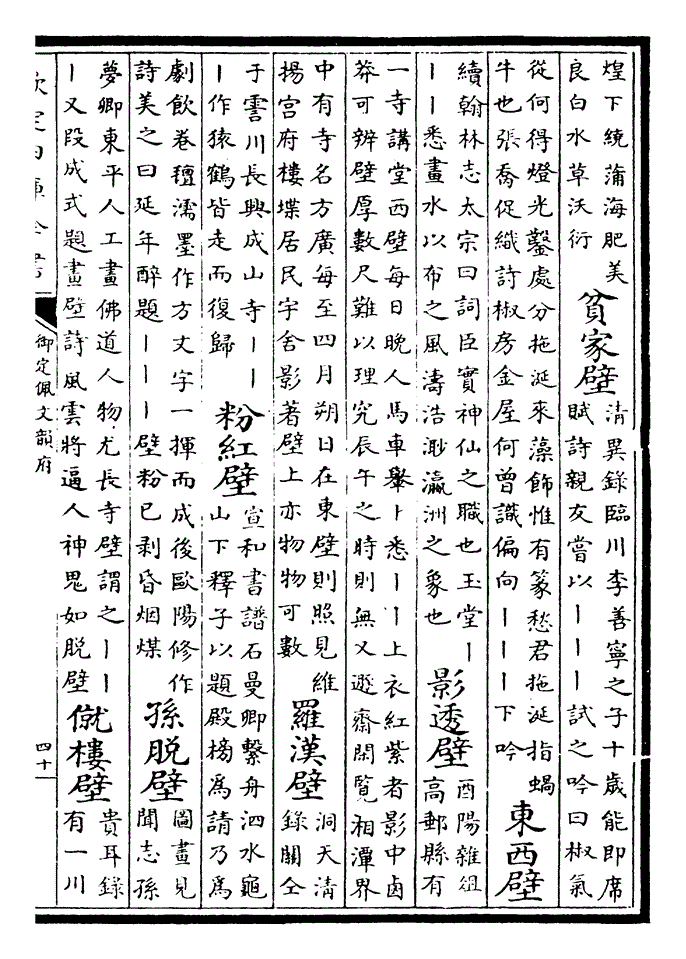 煌下統蒲海肥美
良白水草沃衍
貧家壁
清異錄臨川李善寧之子十歲能即席
賦詩親友嘗以丨丨丨試之吟曰椒氣
從何得燈光鑿處分拖涎來藻飾惟有篆愁君拖涎指蝸
牛也張喬促織詩椒房金屋何曾識偏向丨丨丨下吟
東西壁
續翰林志太宗曰詞臣實神仙之職也玉堂丨
丨丨悉畫水以布之風濤浩渺瀛洲之象也
影透壁
酉陽雜俎
高郵縣有
一寺講堂西壁每日晚人馬車轝卜悉丨丨丨上衣紅紫者影中鹵
莽可辨壁厚數尺難以理究辰午之時則無又遯齋閒覽湘潭界
中有寺名方廣每至四月朔日在東壁則照見維
揚宫府樓堞居民宇舍影著壁上亦物物可數
羅漢壁
洞天清
錄關仝
于霅川長興成山寺丨丨
丨作猿鶴皆走而復歸
粉紅壁
宣和書譜石曼卿繫舟泗水龜
山下釋子以題殿榜為請乃為
劇飲卷氊濡墨作方丈字一揮而成後歐陽修作
詩美之曰延年醉題丨丨丨壁粉已剥昏烟煤
孫脱壁
圖畫見
聞志孫
夢卿東平人工畫佛道人物尤長寺壁謂之丨丨
丨又段成式題畫壁詩風雲將逼人神鬼如脱壁
僦樓壁
貴耳錄
有一川
欽定四庫全書
御定佩文韻府
四十